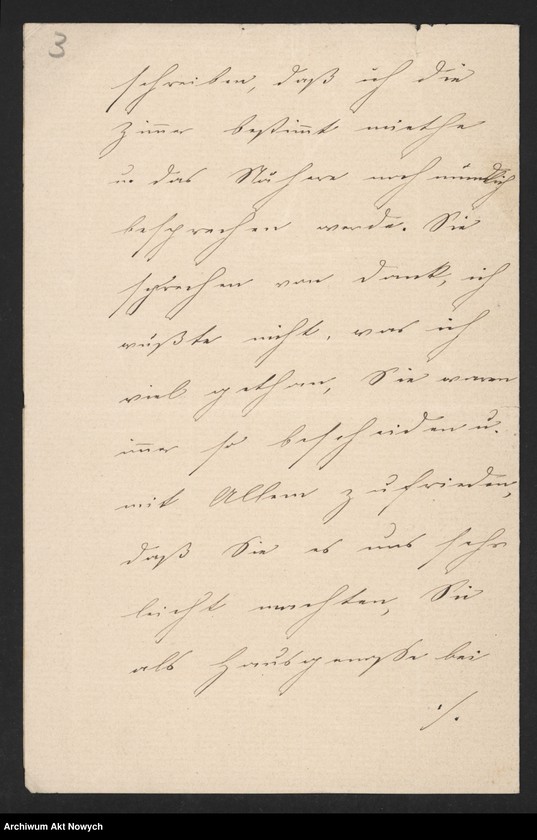 3
schreiben, daß ich die
Zimmer bestimmt miethe
u. das Nähere noch mündlich
besprechen werde. Sie
sprechen von Dank, ich
wüßte nicht, was ich
viel gethan, Sie waren
immer so bescheiden u.
mit Allem zufrieden,
daß Sie es uns sehr
leicht machten, Sie
als Hausgenosse bei
./.
Archiwum Akt Nowych